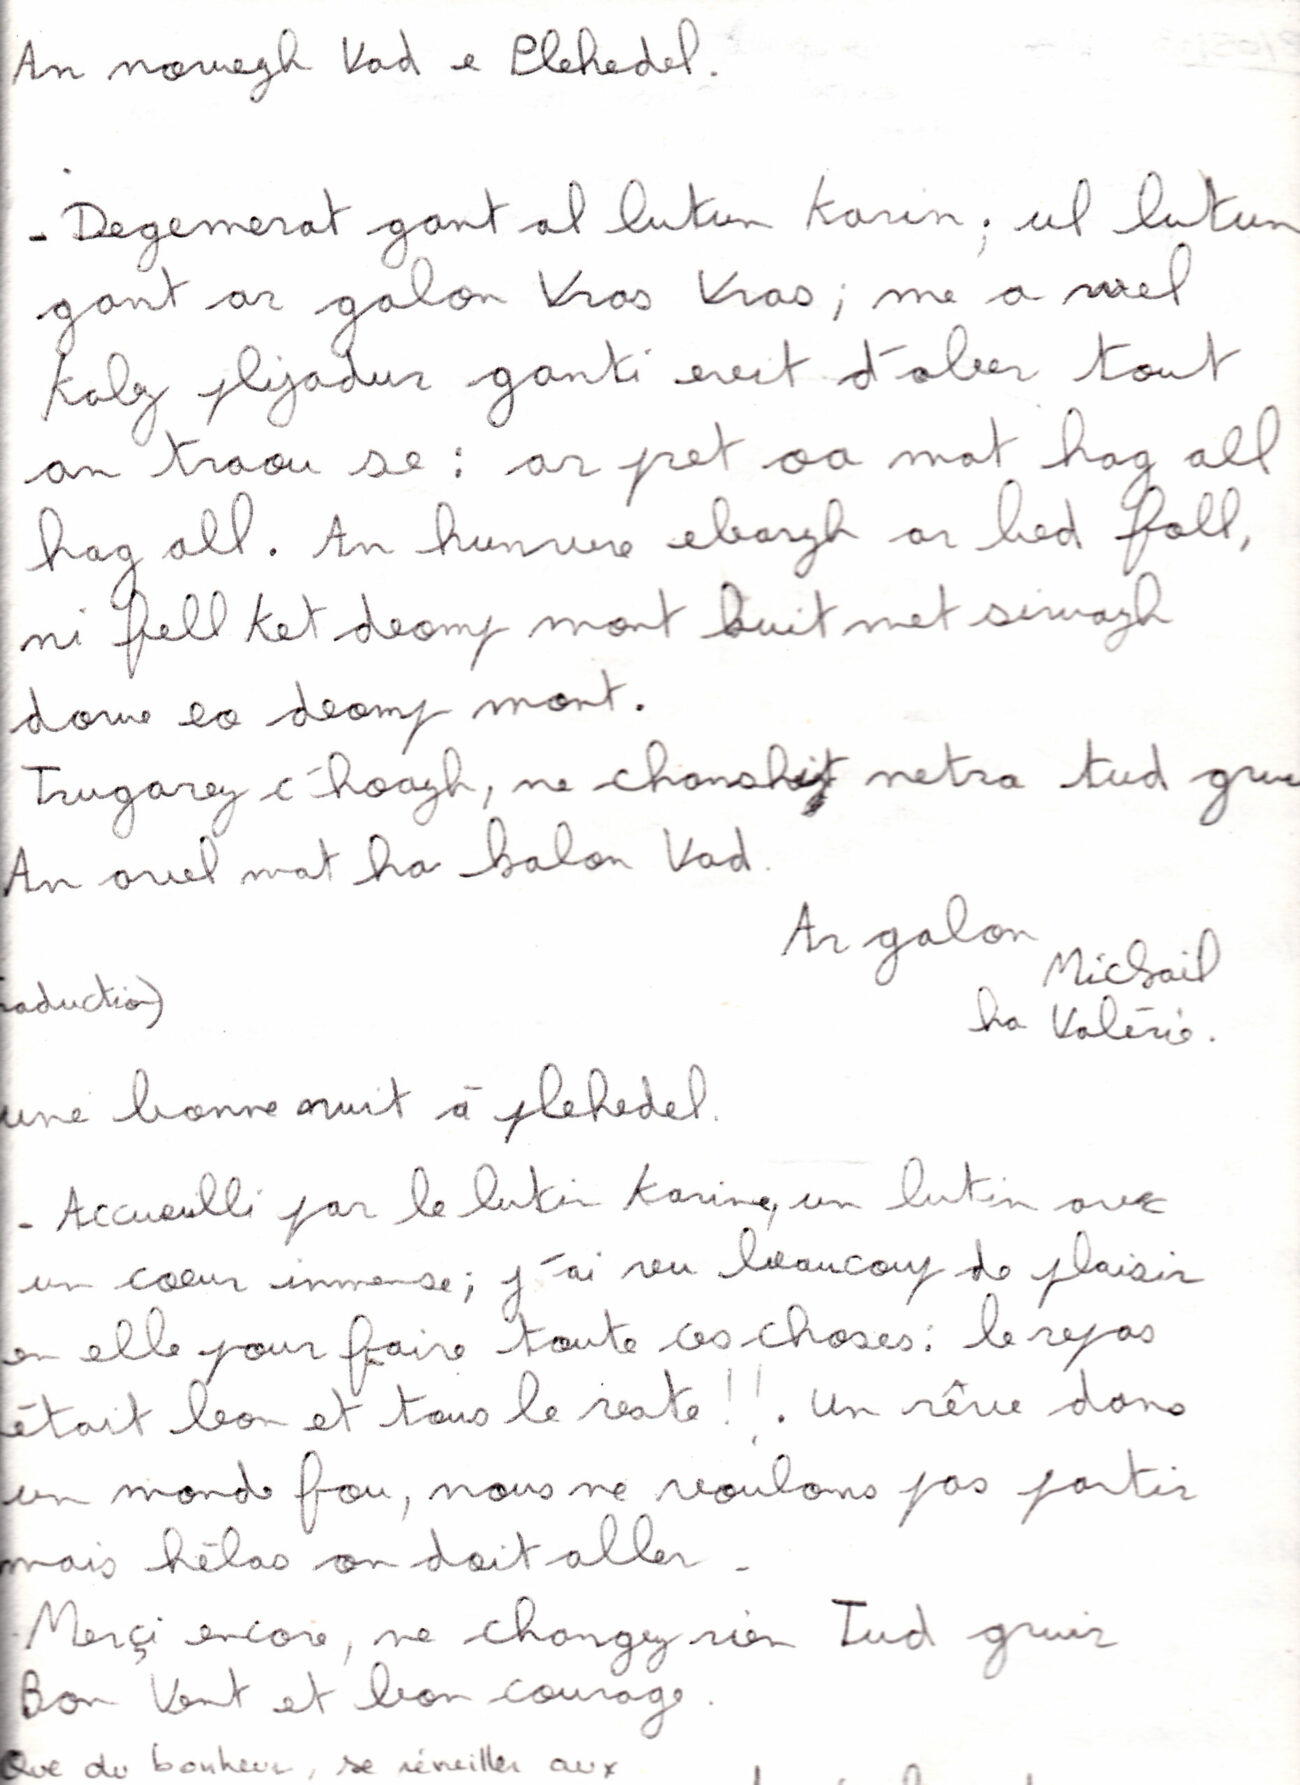 An nowegh Vad e Plehedel.
- Degemerat gant al lutun Karin, ul lutun
gant ar galon Vras Vras; me a wel
Kalz plijadur ganti evit d'ober tout
an traou se : ar pet oa mat hag all
hag all. An hunvre ebargh ar bed foll,
ni fell Ket deomp mont kuit met siwagh
dowe eo deomp mont.
Trugarez c'hoazh, ne chanshit netra tud gwir
An avel mat ha kalon Vad.
Ar galon
Mickail
ha Valérie.
traduction)
une bonne nuit à plehedel.
- Accueilli par le lutin Karine, un lutin avec
un coeur immense; j'ai vu beaucoup de plaisir
en elle pour faire toute ces choses: le repas
était bon et tous le reste!!. Un rêve dans
un monde fou, nous ne voulons pas partir
mais hélas on doit aller -
Merçi encore, ne changez rien Tud gwir
Bon Vent et bon courage.
Que du bonheur, se réveiller aux